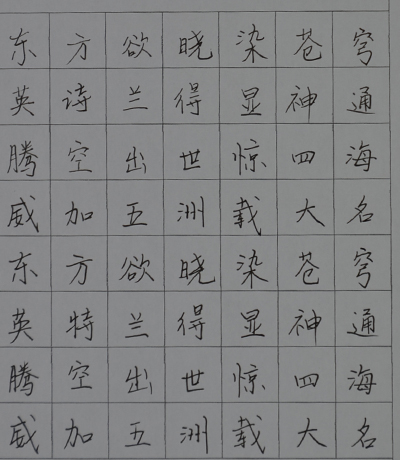 东方欲晓染苍穹
英诗兰得显神通
腾空出世惊四海
威加五洲载大名
东方欲晓染苍穹
英特兰得显神通
腾空出世惊四海
威加五洲载大名